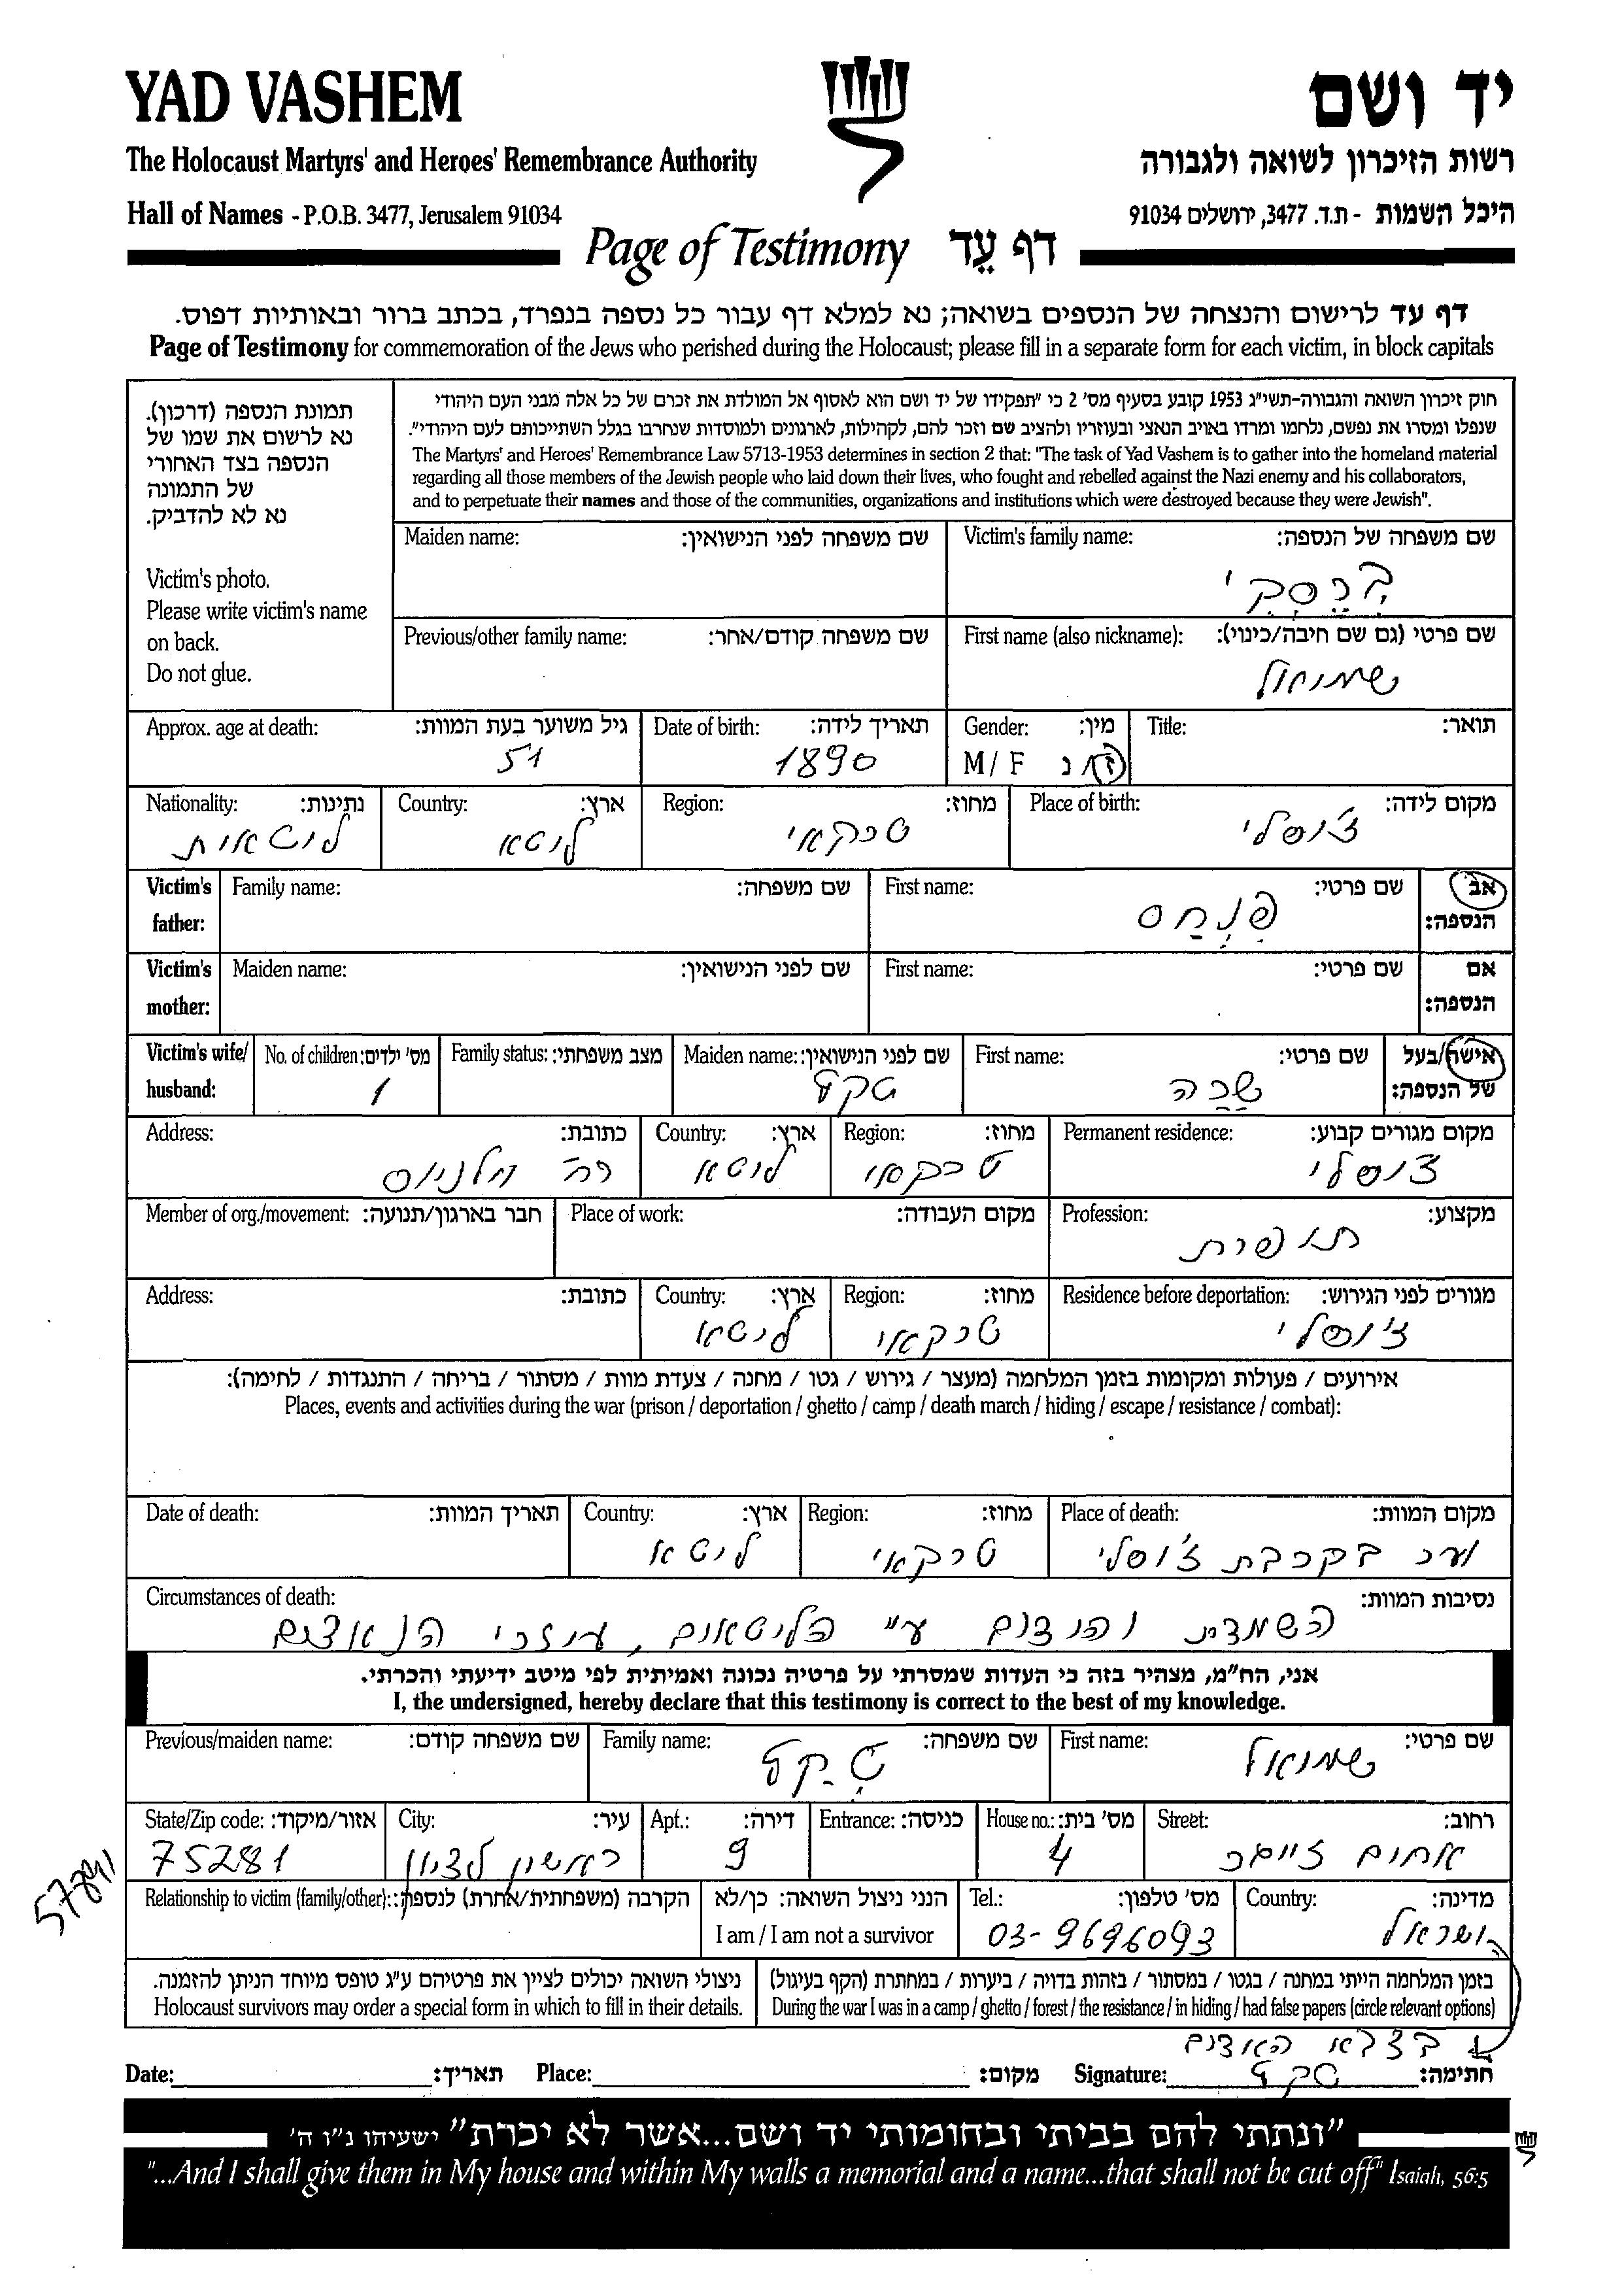 YAD VASHEM
יד ושם
The Holocaust Martyrs' and Heroes' Remembrance Authority
רשות הזיכרון לשואה ולגבורה
Hall of Names - P.O.B. 3477, Jerusalem 91034
היכל השמות - ת.ד. 3477, ירושלים 91034
Page of Testimony דף עֵד
דף עד לרישום והנצחה של הנספים בשואה; נא למלא דף עבור כל נספה בנפרד, בכתב ברור ובאותיות דפוס.
Page of Testimony for commemoration of the Jews who perished during the Holocaust; please fill in a separate form for each victim, in block capitals
תמונת הנספה (דרכון).
נא לרשום את שמו של
הנספה בצד האחורי
של התמונה
נא לא להדביק.
Victim's photo.
Please write victim's name
on back.
Do not glue.
חוק זיכרון השואה והגבורה-תשי"ג 1953 קובע בסעיף מס' 2 כי "תפקידו של יד ושם הוא לאסוף אל המולדת את זכרם של כל אלה מבני העם היהודי
שנפלו ומסרו את נפשם, נלחמו ומרדו באויב הנאצי ובעוזריו ולהציב שם וזכר להם, לקהילות, לארגונים ולמוסדות שנחרבו בגלל השתייכותם לעם היהודי".
The Martyrs' and Heroes' Remembrance Law 5713-1953 determines in section 2 that: "The task of Yad Vashem is to gather into the homeland material
regarding all those members of the Jewish people who laid down their lives, who fought and rebelled against the Nazi enemy and his collaborators,
and to perpetuate their names and those of the communities, organizations and institutions which were destroyed because they were Jewish".
Victim's family name: שם משפחה של הנספה:
Maiden name: שם משפחה לפני הנישואין:
First name (also nickname): שם פרטי (גם שם חיבה/כינוי):
שמואל
Previous/other family name: שם משפחה קודם/אחר:
Title: תואר:
Gender: מין:
M / F ז / נ
Date of birth: תאריך לידה:
1890
Approx. age at death: גיל משוער בעת המוות:
51
Place of birth: מקום לידה:
ז'וסלי
Region: מחוז:
טרקאי
Country: ארץ:
ליטא
Nationality: נתינות:
ליטאית
Victim's father: אב הנספה:
First name: שם פרטי:
פִּנְחַס
Family name: שם משפחה:
Victim's mother: אם הנספה:
First name: שם פרטי:
Maiden name: שם לפני הנישואין:
Victim's wife/ husband: אישה/בעל של הנספה:
First name: שם פרטי:
שרה
Maiden name: שם לפני הנישואין:
טקץ
Family status: מצב משפחתי:
No. of children: מס' ילדים:
1
Permanent residence: מקום מגורים קבוע:
ז'וסלי
Region: מחוז:
טרקאי
Country: ארץ:
ליטא
Address: כתובת:
רח' וילניוס
Profession: מקצוע:
Place of work: מקום העבודה:
Member of org./movement: חבר בארגון/תנועה:
Residence before deportation: מגורים לפני הגירוש:
ז'וסלי
Region: מחוז:
טרקאי
Country: ארץ:
ליטא
Address: כתובת:
אירועים / פעולות ומקומות בזמן המלחמה (מעצר / גירוש / גטו / מחנה / צעדת מוות / מסתור / בריחה / התנגדות / לחימה):
Places, events and activities during the war (prison / deportation / ghetto / camp / death march / hiding / escape / resistance / combat):
Place of death: מקום המוות:
יער בקרבת ז'וסלי
Region: מחוז:
טרקאי
Country: ארץ:
ליטא
Date of death: תאריך המוות:
Circumstances of death: נסיבות המוות:
השמדת היהודים ע"י הליטאים, עוזרי הנאצים
אני, הח"מ, מצהיר בזה כי העדות שמסרתי על פרטיה נכונה ואמיתית לפי מיטב ידיעתי והכרתי.
I, the undersigned, hereby declare that this testimony is correct to the best of my knowledge.
First name: שם פרטי:
שמואל
Family name: שם משפחה:
טקץ
Previous/maiden name: שם משפחה קודם:
Street: רחוב:
House no.: מס' בית:
4
Entrance: כניסה:
Apt.: דירה:
9
City: עיר:
ראשון לציון
State/Zip code: אזור/מיקוד:
75281
57841
Country: מדינה:
ישראל
Tel.: מס' טלפון:
03-9696093
הנני ניצול השואה: כן/לא
I am / I am not a survivor
Relationship to victim (family/other): הקרבה (משפחתית/אחרת) לנספה:
בזמן המלחמה הייתי במחנה / בגטו / במסתור / בזהות בדויה / ביערות / במחתרת (הקף בעיגול)
During the war I was in a camp / ghetto / forest / the resistance / in hiding / had false papers (circle relevant options)
ניצולי השואה יכולים לציין את פרטיהם ע"ג טופס מיוחד הניתן להזמנה.
Holocaust survivors may order a special form in which to fill in their details.
Signature: חתימה:
טקץ
Place: מקום:
Date: תאריך:
"ונתתי להם בביתי ובחומותי יד ושם...אשר לא יכרת" ישעיהו נ"ו ה'
"...And I shall give them in My house and within My walls a memorial and a name...that shall not be cut off" Isaiah, 56:5